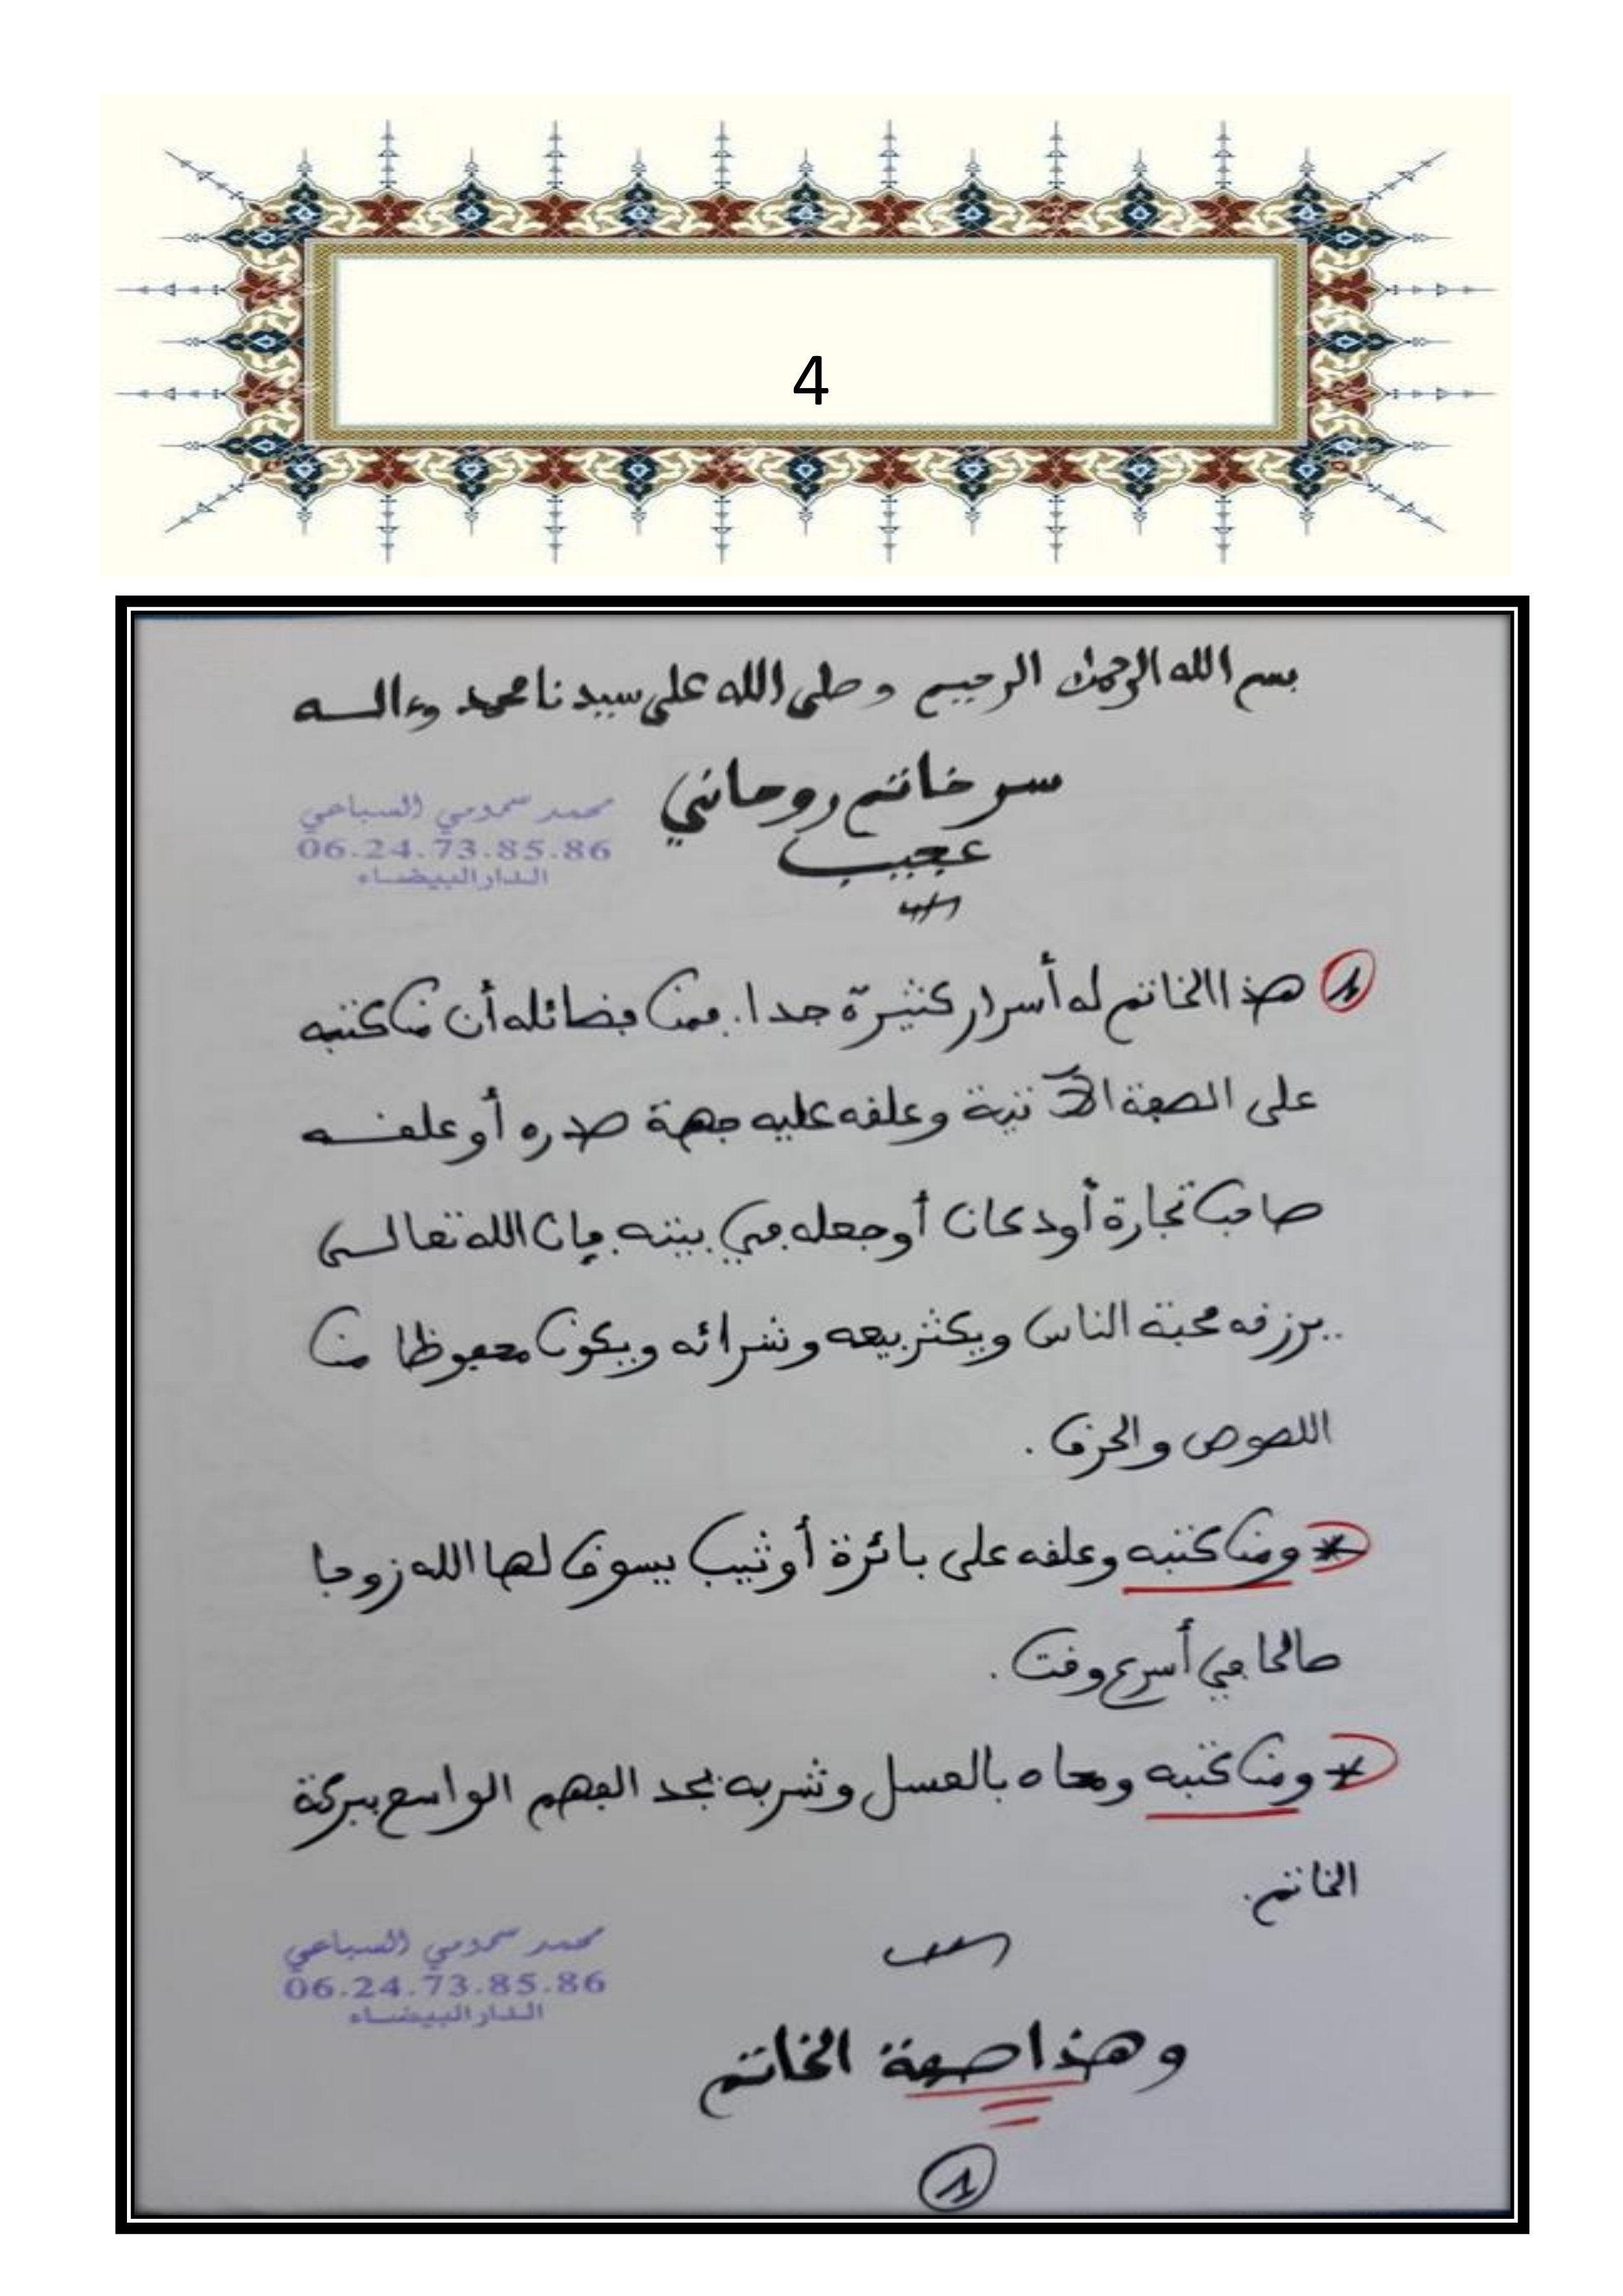 4
بسم الله الرحمن الرحيم وصلى الله على سيدنا محمد وءالـــه
سر خاتم روحاني
عجيب
محمد سمومي السباعي
06.24.73.85.86
الدار البيضاء
1 هذا الخاتم له أسرار كثيرة جدا. فمن فضائله أن من كتبه
على الصفة الآتية وعلقه عليه جهة صدره أو علقـــه
صاحب تجارة أو دكان أو جعله في بيته فإن الله تعالـــى
يرزقه محبة الناس ويكثر بيعه وشرائه ويكون محفوظا من
اللصوص والحرق .
* ومن كتبه وعلقه على بائرة أو ثيب يسوق لها الله زوجا
صالحا في أسرع وقت .
* ومن كتبه ومحاه بالعسل وشربه يجد الفهم الواسع ببركة
الخاتم.
محمد سمومي السباعي
06.24.73.85.86
الدار البيضاء
وهذا صفة الخاتم
1